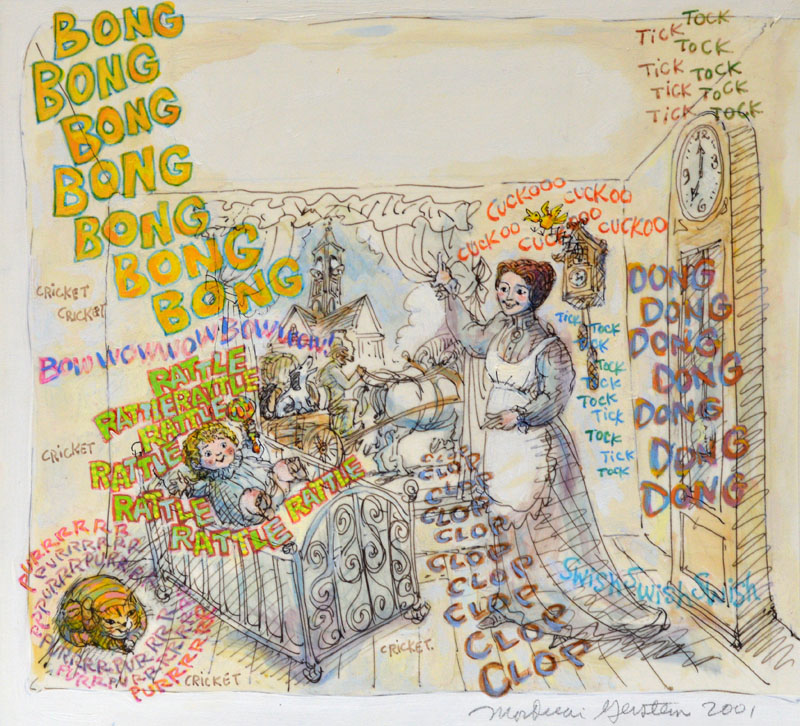 BONG
BONG
BONG
BONG
BONG
BONG
BONG
TICK TOCK
TOCK
TICK TOCK
TICK TOCK
TICK TOCK
12
3
6
9
CUCKOOO CUCKOO
CUCKOO CUCKOOO CUCKOO
DONG
DONG
DONG
DONG
DONG
DONG
DONG
TICK TOCK
TOCK
TOCK
TICK
TOCK
TICK
TOCK
TICK
TOCK
CRICKET
CRICKET
BOWWOWWOWBOWWOW!
RATTLE
RATTLERATTLE
RATTLE
RATTLE
RATTLE
RATTLE RATTLE
CRICKET
CLOP
CLOP
CLOP
CLOP
CLOP
CLOP
CLOP
CLOP
CLOP
CLOP
CLOP
SWISH SWISH SWISH
PURRRRRR
CRICKET
CRICKET
Mordicai Gerstein 2001